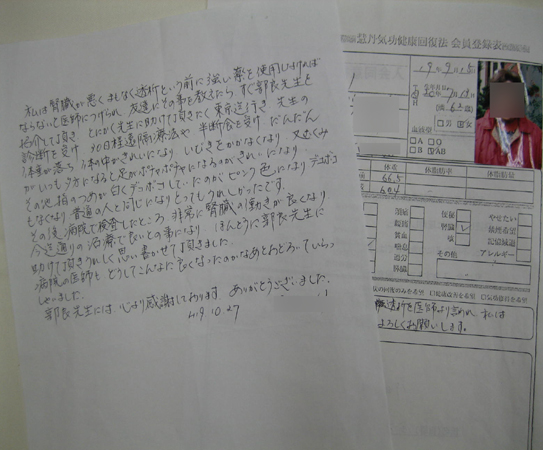 私は腎臓が悪くまもなく透析という前に強い薬を使用しなければ
ならないと医師につげられ、友達にその事を教えたら、すぐ郭良先生を
紹介して頂き、とにかく先生に助けて頂きたく東京迄行き、先生の
診断を受け、30日程遠隔療法や半断食を受け だんだん
体重が落ち、体の中がきれいになり、いびきをかかなくなり、又むくみ
がいつも夕方になると足がボチャボチャになるのがきれいになり
その他指のつめが白くデッボコしていたのがピンク色になりデコボコ
もなくなり普通の人と同じになりとってもうれしかったです。
その後病院で検査したところ、非常に腎臓の働きが良くなり
今迄通りの治療で良いとの事になり ほんとうに郭良先生に
助けて頂きうれしく思い書かせて頂きました。
病院の医師も どうしてこんなに良くなったのかなあとおどろいていらっ
しゃいました。
郭良先生には、心より感謝しております ありがとうございました。
H19.10.27
慧丹気功健康回復法 会員登録表
血液型
A
O
B
AB
体重
体脂肪率
体脂肪量
66.5
60.4
頭痛
腎臓
喘息
肝臓
その他
やせたい
記憶減退
アレルギー
透析を医師より言われ、私は
よろしくお願いします。